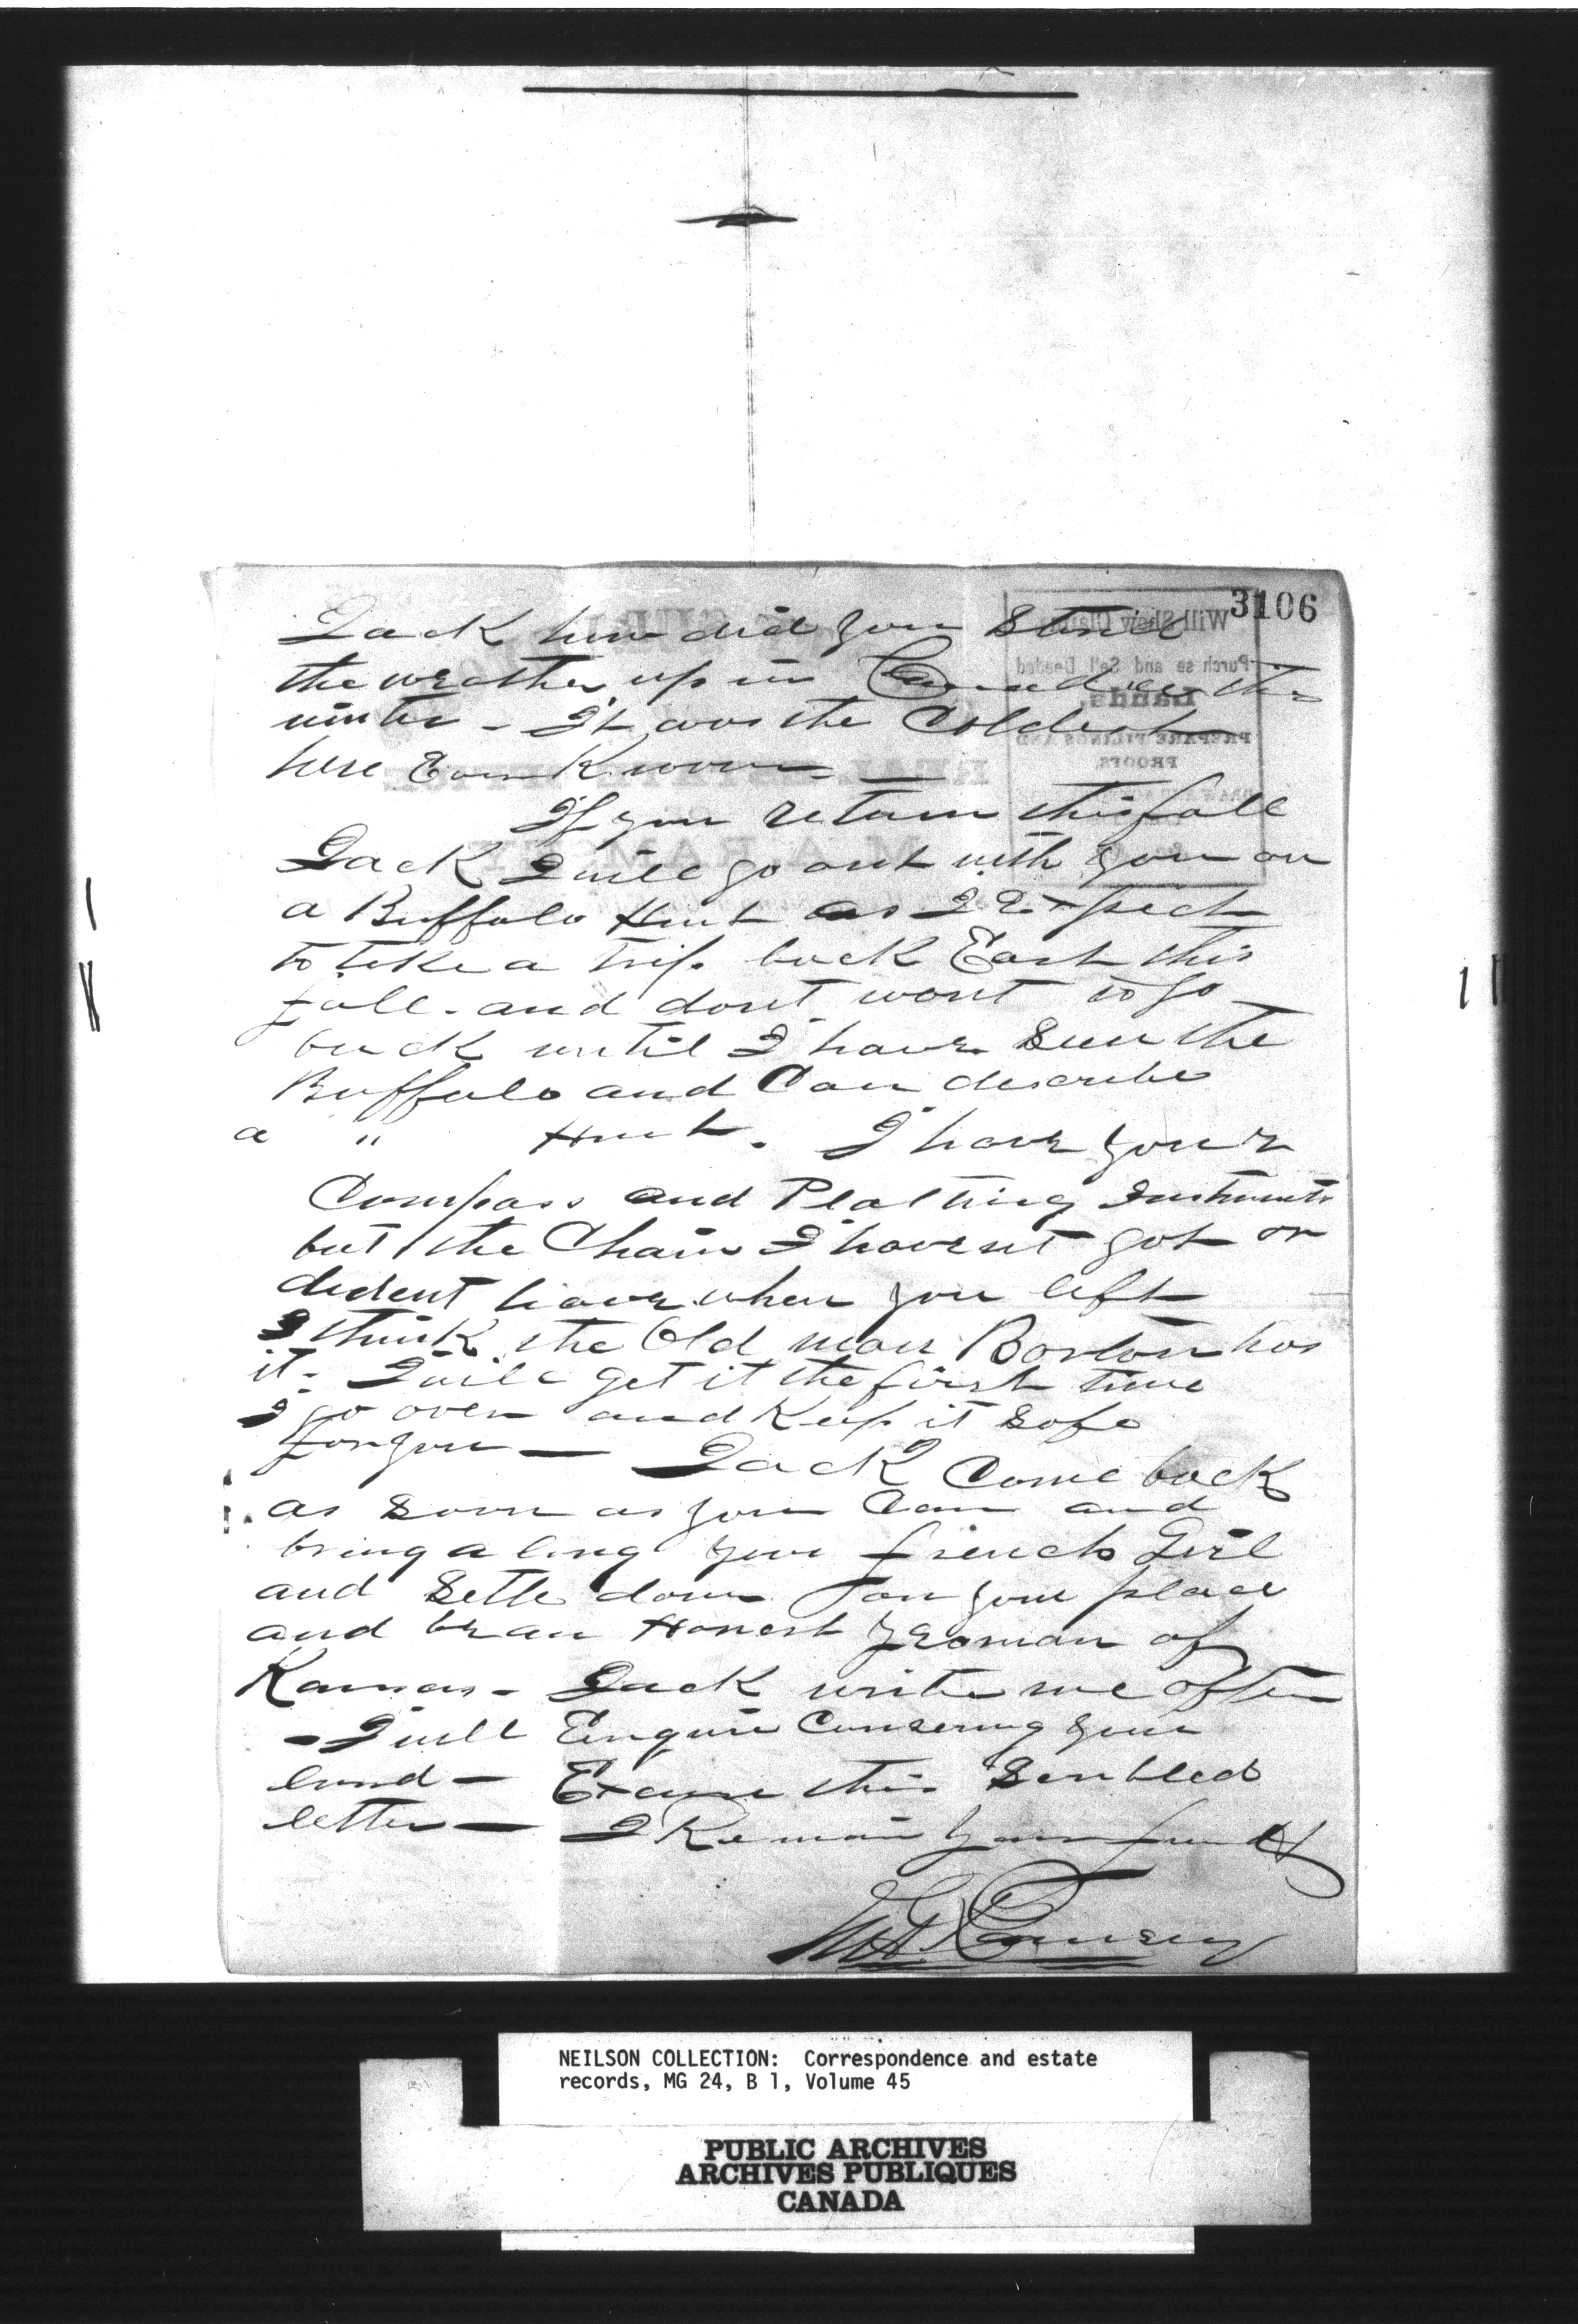 3106
Jack how did you stand
the weather up in Canada this
winter - It was the Coldest
here Ever Known
If you return this fall
Jack I will go out with you on
a Buffalo Hunt as I Expect
to take a trip back East this
fall - and dont want to go
back until I have seen the
Buffalo and Can describe
a " Hunt. I have your
Compass and Platting Instruments
but the Chain I havent got or
dident have when you left
I think the Old man Barton has
it - I will get it the first time
I go over and Keep it safe
for you — Jack Come back
as soon as you Can and
bring a long your french Girl
and settle down on your place
and be an Honest yeoman of
Kansas - Jack write me often
- I will Enquire Conserning your
land — Excuse this Scribbled
letter — I Remain your friend
M A Ramsey
Will Show Claims
Purch se and Sell Deeded
Lands,
PREPARE FILINGS AND
PROOFS,
REAL ESTATE OFFICE
OF
M. A. RAMSEY
NEILSON COLLECTION: Correspondence and estate
records, MG 24, B 1, Volume 45
PUBLIC ARCHIVES
ARCHIVES PUBLIQUES
CANADA